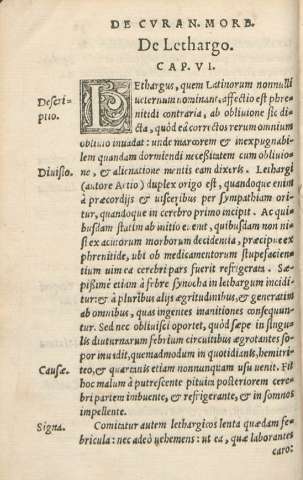 DE CVRAN. MORB.
De Lethargo.
CAP. VI.
Descri-
ptio.
LEthargus, quem Latinorum nonnulli
ueternum nominant, affectio est phre
nitidi contraria, ab obliuione sic di
cta, quòd ea correctos rerum omnium
obliuio inuadat: unde marcorem & inexpugnabi
lem quandam dormiendi neceßitatem cum obliuio
Diuisio.
ne, & alienatione mentis eam dixeris. Lethargi
(autore Aëtio) duplex origo est, quandoque enim
à præcordijs & uisceribus per sympathiam ori
tur, quandoque in cerebro primo incipit. Ac qui
busdam statim ab initio euenit, quibusdam non ni
si ex acutorum morborum decidentia, præcipue ex
phrenitide, ubi ob medicamentorum stupefacien
tium uim ea cerebri pars fuerit refrigerata. Sæ-
pißime etiam à febre synocha in lethargum incidi
tur: & à pluribus alijs ægritudinibus, & generatim
ab omnibus, quas ingentes inanitiones consequun-
tur. Sed nec obliuisci oportet, quòd sæpe in singu
lis diuturnarum febrium circuitibus ægrotantes so
por inuadit, quemadmodum in quotidianis, hemitri
Causæ.
teo, & quartanis etiam nonnunquam usu uenit. Fit
hoc malum à putrescente pituita posteriorem cere-
bri partem imbuente, & refrigerante, & in somnos
impellente.
Signa.
Comitatur autem lethargicos lenta quædam fe-
bricula: nec adeò uehemens: ut ea, quæ laborantes
caro: